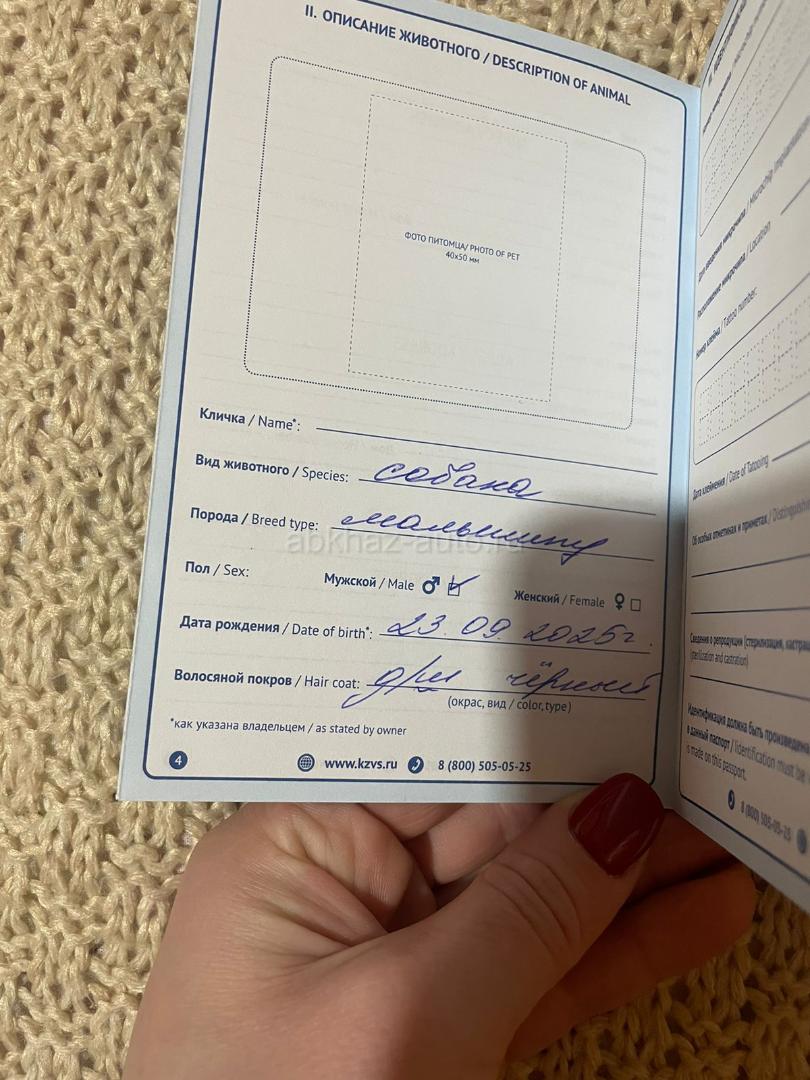 II. ОПИСАНИЕ ЖИВОТНОГО / DESCRIPTION OF ANIMAL
ФОТО ПИТОМЦА/ PHOTO OF PET
40х50 мм
Кличка / Name*:
Вид животного / Species: собака
Порода / Breed type: мальтипу
abkhaz-auto.ru
Пол / Sex: Мужской / Male ♂ Женский / Female ♀
Дата рождения / Date of birth*: 23.09.2025г.
Волосяной покров / Hair coat: д/ш чёрный
(окрас, вид / color, type)
*как указана владельцем / as stated by owner
4 www.kzvs.ru 8 (800) 505-05-25
Дата введения микрочипа / Microchip
Расположение микрочипа / Location
Номер клейма / Tattoo number:
Дата клеймения / Date of Tattooing
Об особых отметинах и приметах /
Сведения о репродукции (стерилизация,
(sterilization and castration)
Идентификация должна быть
в данный паспорт / Identification must be
is made on this passport.
8 (800) 505-05-25